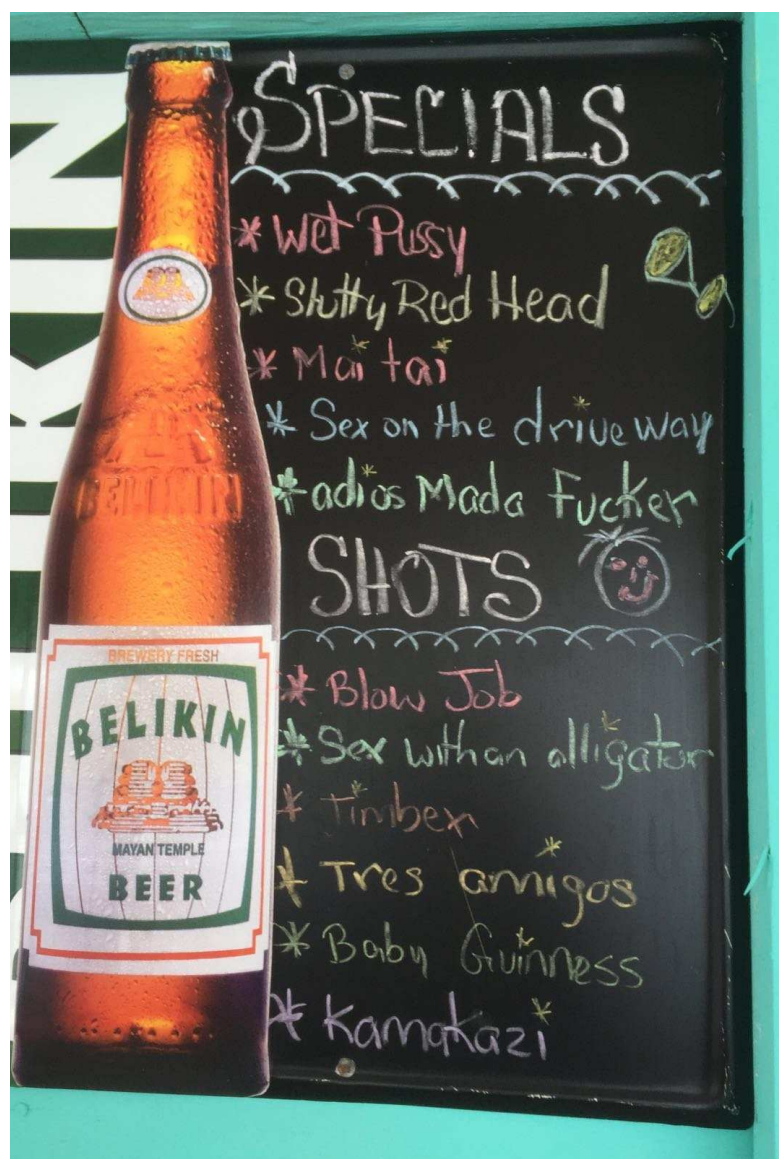 SPECIALS
* Wet Pussy
* Slutty Red Head
* Mai tai
* Sex on the drive way
* adios Mada Fucker
SHOTS
* Blow Job
* Sex with an alligator
* Timbex
* Tres amigos
* Baby Guinness
* Kamakazi
BELIKIN
BREWERY FRESH
BELIKIN
MAYAN TEMPLE
BEER